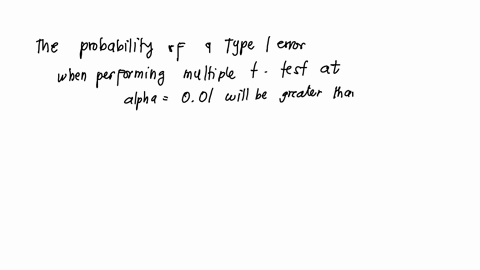 The probability of a Type 1 error
when performing multiple t. test at
alpha = 0.01 will be greater than